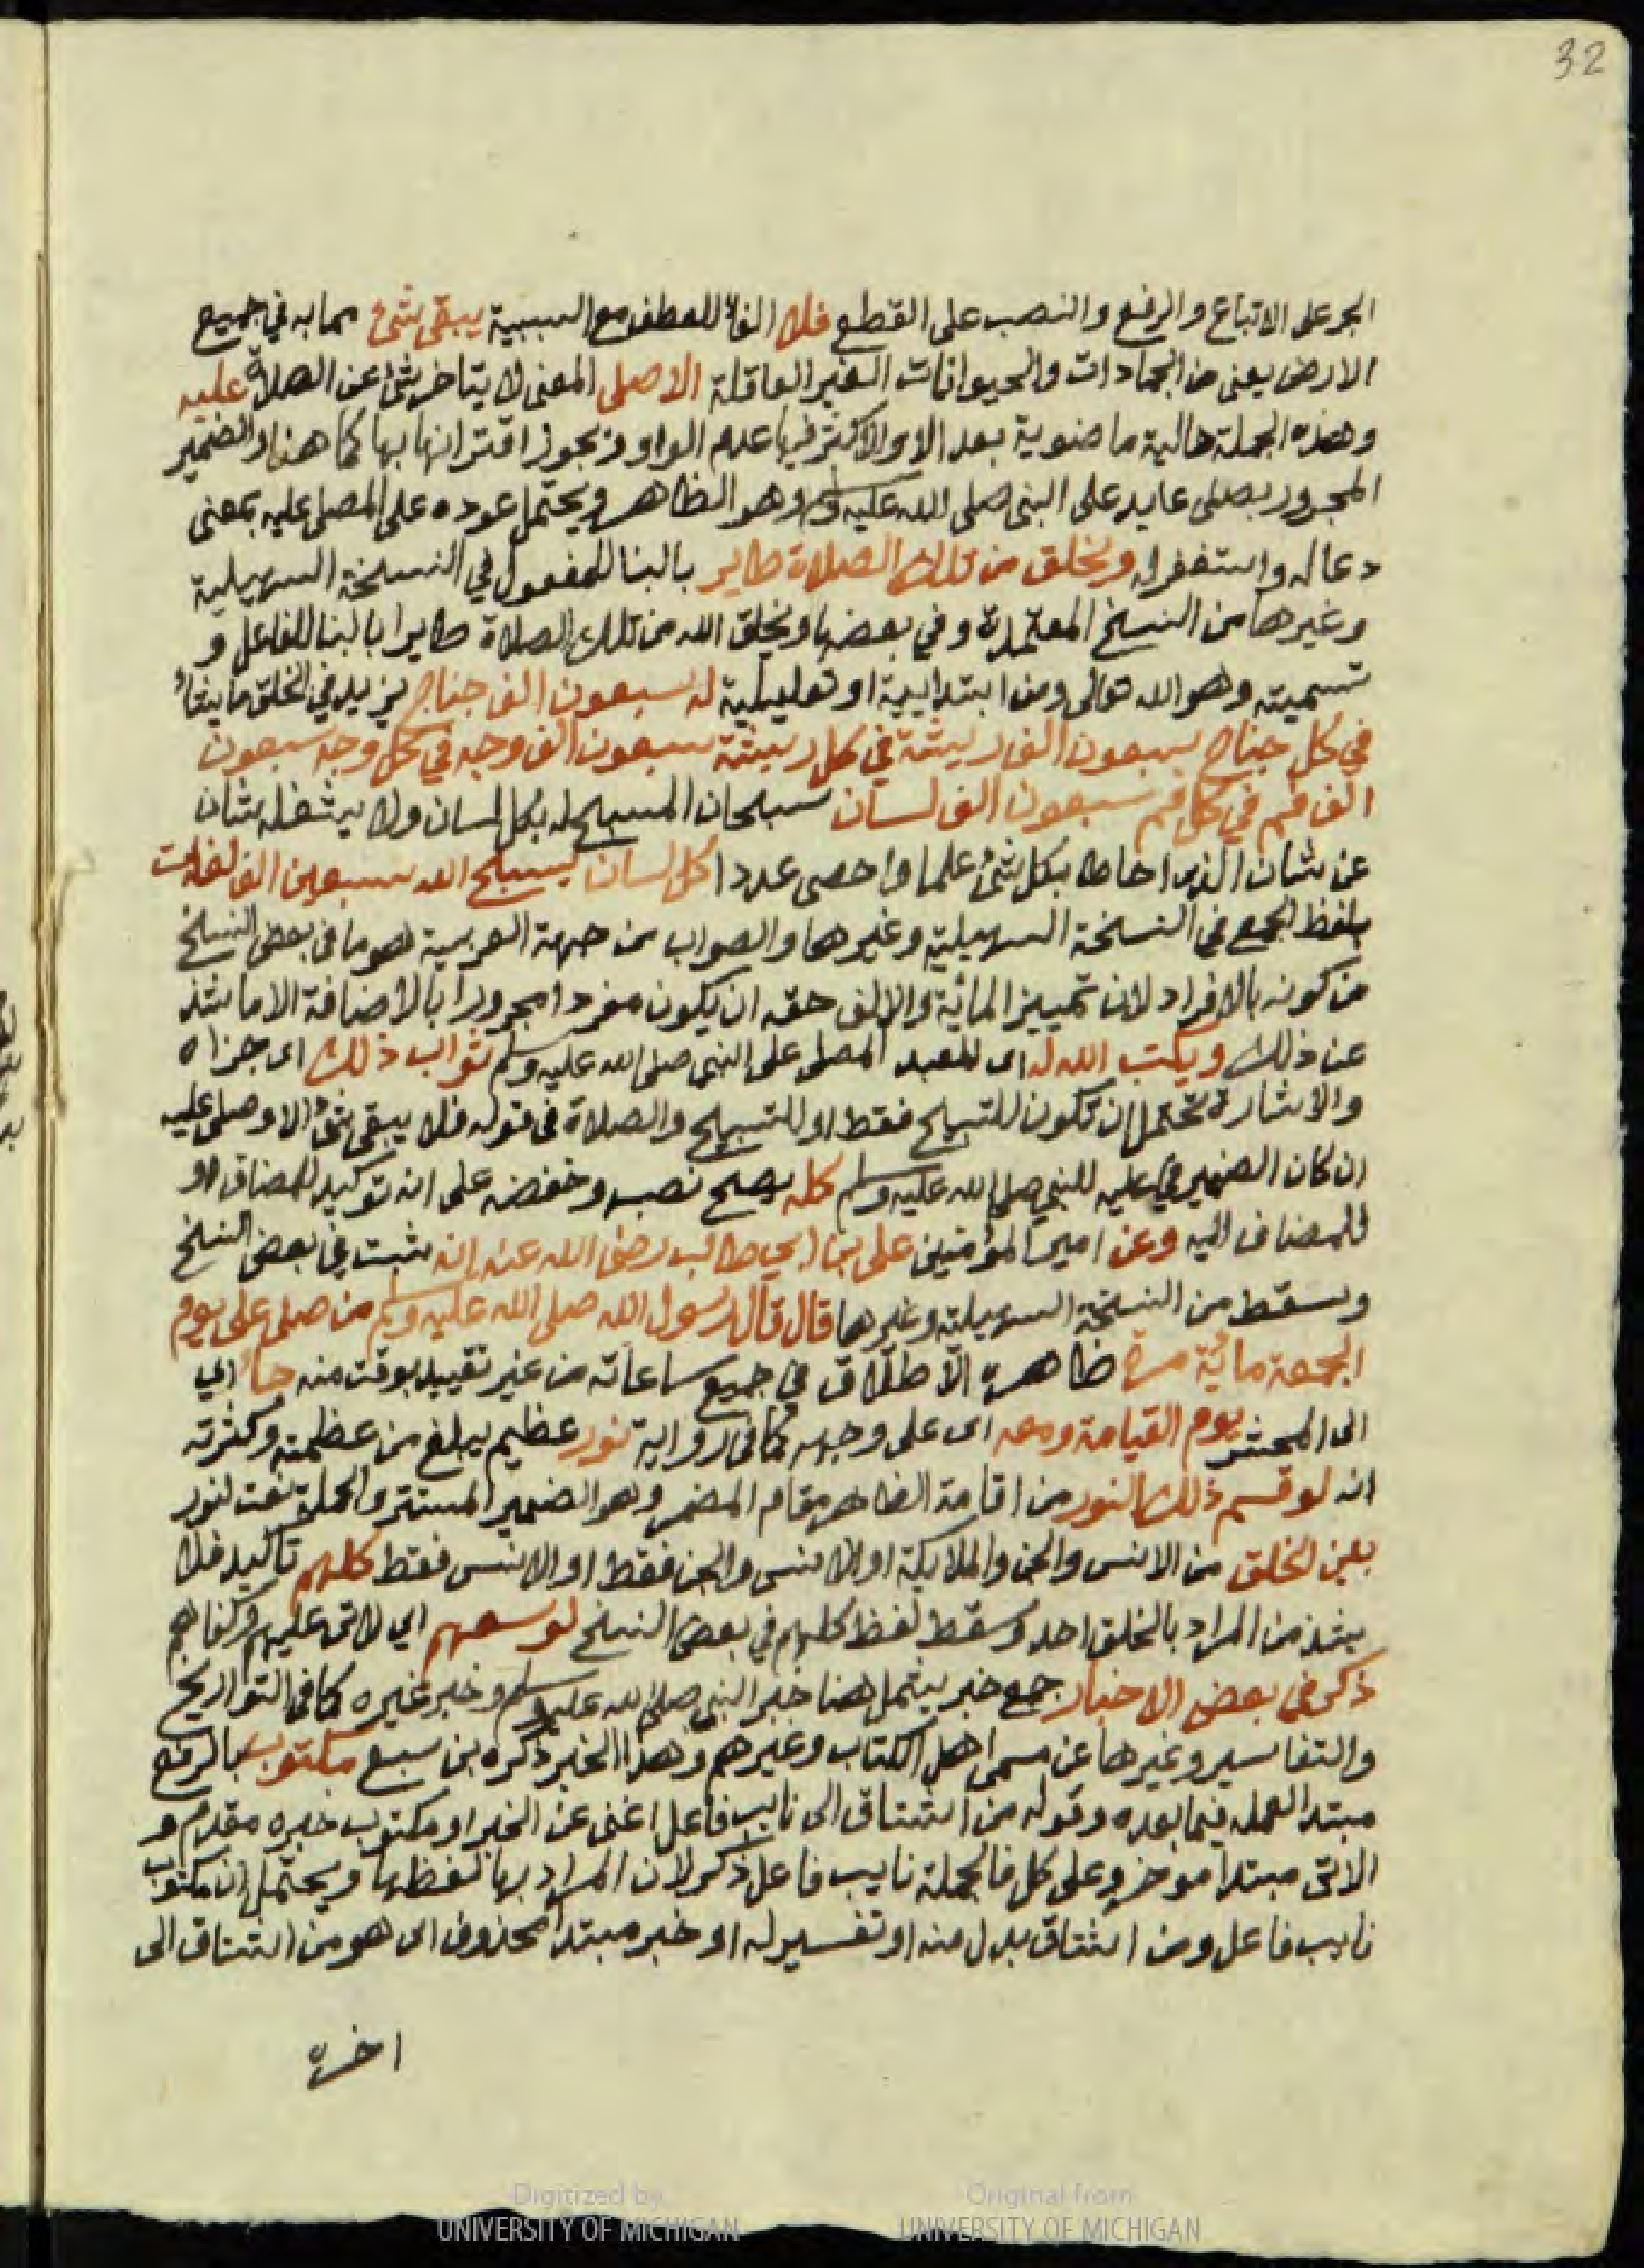 32
الجر على الاتباع والرفع والنصب على القطع فلا الفاء للعطف مع السببية يبقى شئ مما به في جميع
الارض يعني من الجمادات والحيوانات الغير العاقلة الا صلى المعنى لا يتاخر شئ عن الصلاة عليه
وهذه الجملة حالية ماضوية بعد الا والاكثر فيها عدم الواو ويجوز اقترانها بها كما هنا والضمير
المجرور بصلى عايد على النبي صلى الله عليه وسلم وهو الظاهر ويحتمل عوده على المصلي عليه بمعنى
دعا له واستغفر له ويخلق من تلك الصلاة طاير بالبنا للمفعول في النسخة السهيلية
وغيرها من النسخ المعتمدة وفي بعضها ويخلق الله من تلك الصلاة طايرا بالبنا للفاعل و
تسميته وهو الله تعالى ومن ابتدايية او تعليلية له سبعون الف جناح يزيد في الخلق ما يشاء
في كل جناح سبعون الف ريشة في كل ريشة سبعون الف وجه في كل وجه سبعون
الف فم في كل فم سبعون الف لسان سبحان المسبح له بكل لسان ولا يشغله شان
عن شان الذي احاط بكل شئ علما واحصى عددا كل لسان يسبح الله سبعين الف لغات
بلفظ الجمع في النسخة السهيلية وغيرها والصواب من جهة العربية هو ما في بعض النسخ
من كونه بالافراد لان تمييز المائة والالف حقه ان يكون مفردا مجرورا بالاضافة الا ما شذ
عن ذلك ويكتب الله له اى للعبد المصلي على النبي صلى الله عليه وسلم ثواب ذلك اى جزاه
والاشارة تحتمل ان تكون للتسبيح فقط او للتسبيح والصلاة في قوله فلا يبقى شئ الا وصلى عليه
ان كان الضمير في عليه للنبي صلى الله عليه وسلم كله يصح نصبه وخفضه على انه توكيد للمضاف او
للمضاف اليه وعن امير المؤمنين على بن ابي طالب رضى الله عنه انه ثبت في بعض النسخ
وسقط من النسخة السهيلية وغيرها قال قال رسول الله صلى الله عليه وسلم من صلى على يوم
الجمعة مائة مرة ظاهره الاطلاق في جميع ساعاته من غير تقييد بوقت منه جاء اي
الى المحشر يوم القيامة ومعه اى على وجهه كما في رواية نور عظيم يبلغ من عظمته وكثرته
انه لو قسم ذلك النور من اقامة الظاهر مقام المضمر وهو الضمير المستتر والجملة نعت لنور
بين الخلق من الانس والجن والملايكة او الانس والجن فقط او الانس فقط كلهم تاكيد فلا
يشذ من المراد بالخلق احد وسقط لفظ كلهم في بعض النسخ لوسعهم اي لاتى عليهم وكفاهم
ذكر في بعض الاخبار جمع خبر يشمل هنا خبر النبي صلى الله عليه وسلم وخبر غيره كما في التواريخ
والتفاسير وغيرها عن مسمى اهل الكتاب وغيرهم وهذا الخبر ذكره بن سبع مكتوب بالرفع
مبتدا لعمله فيما بعده وقوله من اشتاق الى نايب فاعل اغنى عن الخبر او مكتوب خبره مقدم و
الاتى مبتدا موخر وعلى كل فالجملة نايب فاعل ذكر لان المراد بها لفظها ويحتمل ان مكتوب
نايب فاعل ومن اشتاق بدل منه او تفسير له او خبر مبتدا محذوف اى هو من اشتاق الى
اخره
Digitized by
UNIVERSITY OF MICHIGAN
Original from
UNIVERSITY OF MICHIGAN